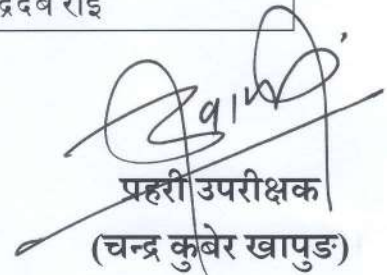 द्रदेव राई
प्रहरी उपरीक्षक
(चन्द्र कुबेर खापुङ)